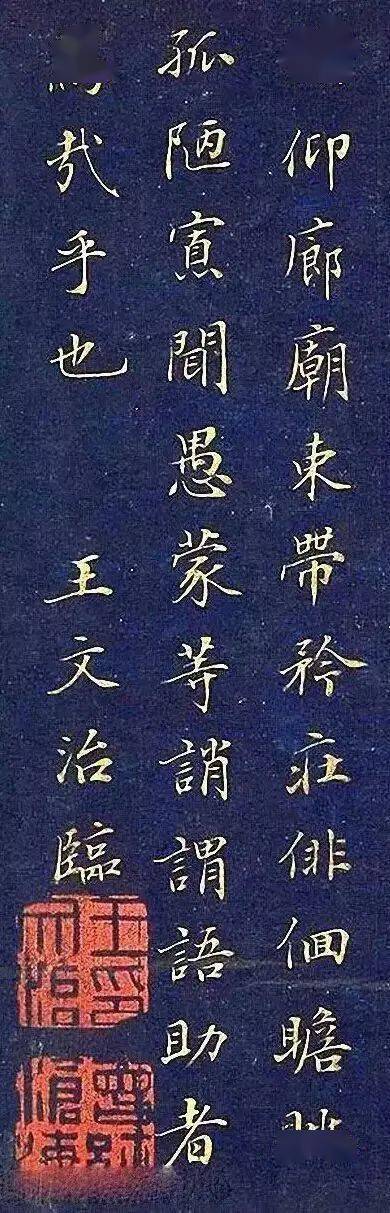 仰廊廟束帶矜莊俳佪瞻
孤陋寡聞愚蒙等誚謂語助者
哉乎也 王文治臨
王文治印